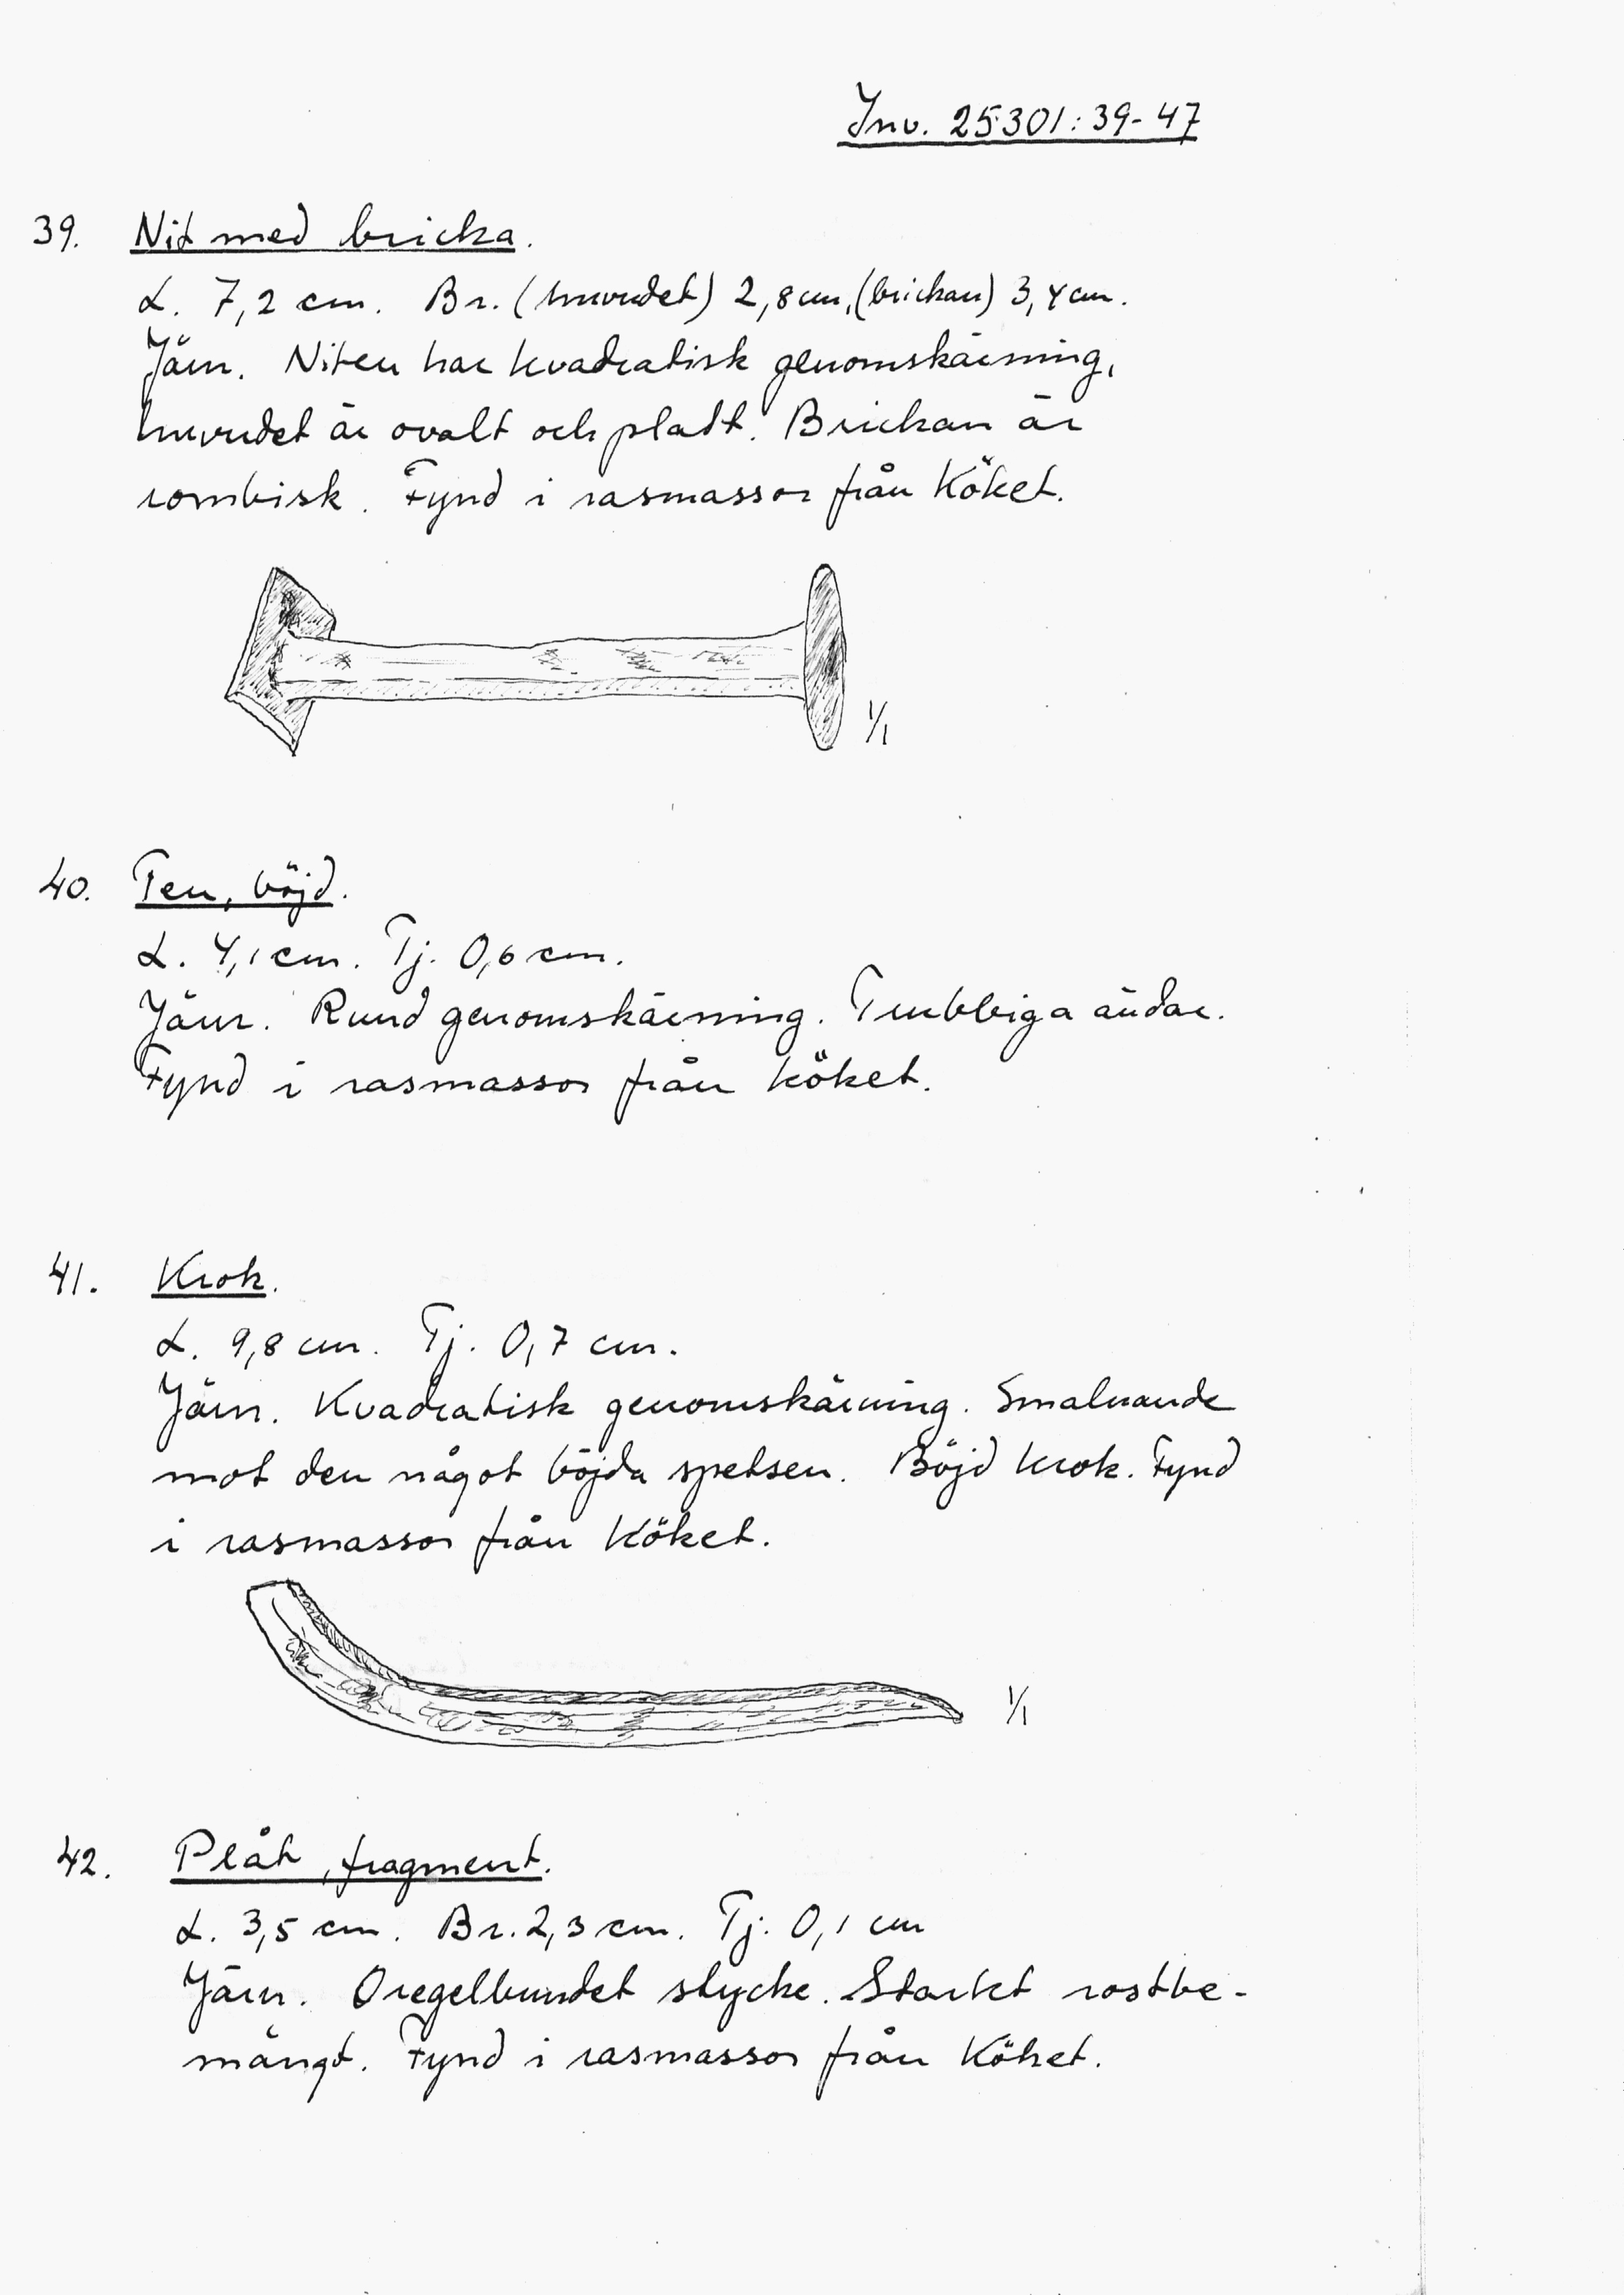 Inv. 25301:39-47
39. Nit med bricka.
L. 7,2 cm. Br. (huvudet) 2,8 cm, (brickan) 3,4 cm.
Järn. Niten har kvadratisk genomskärning,
huvudet är ovalt och platt. Brickan är
rombisk. Fynd i rasmassor från Köket.
1/1
40. Ten, böjd.
L. 4,1 cm. Tj. 0,6 cm.
Järn. Rund genomskärning. Trubbiga ändar.
Fynd i rasmassor från Köket.
41. Krok.
L. 9,8 cm. Tj. 0,7 cm.
Järn. Kvadratisk genomskärning. Smalnande
mot den något böjda spetsen. Böjd krok. Fynd
i rasmassor från Köket.
1/1
42. Plåt, fragment.
L. 3,5 cm. Br. 2,3 cm. Tj. 0,1 cm
Järn. Oregelbundet stycke. Starkt rostbe-
mängt. Fynd i rasmassor från Köket.